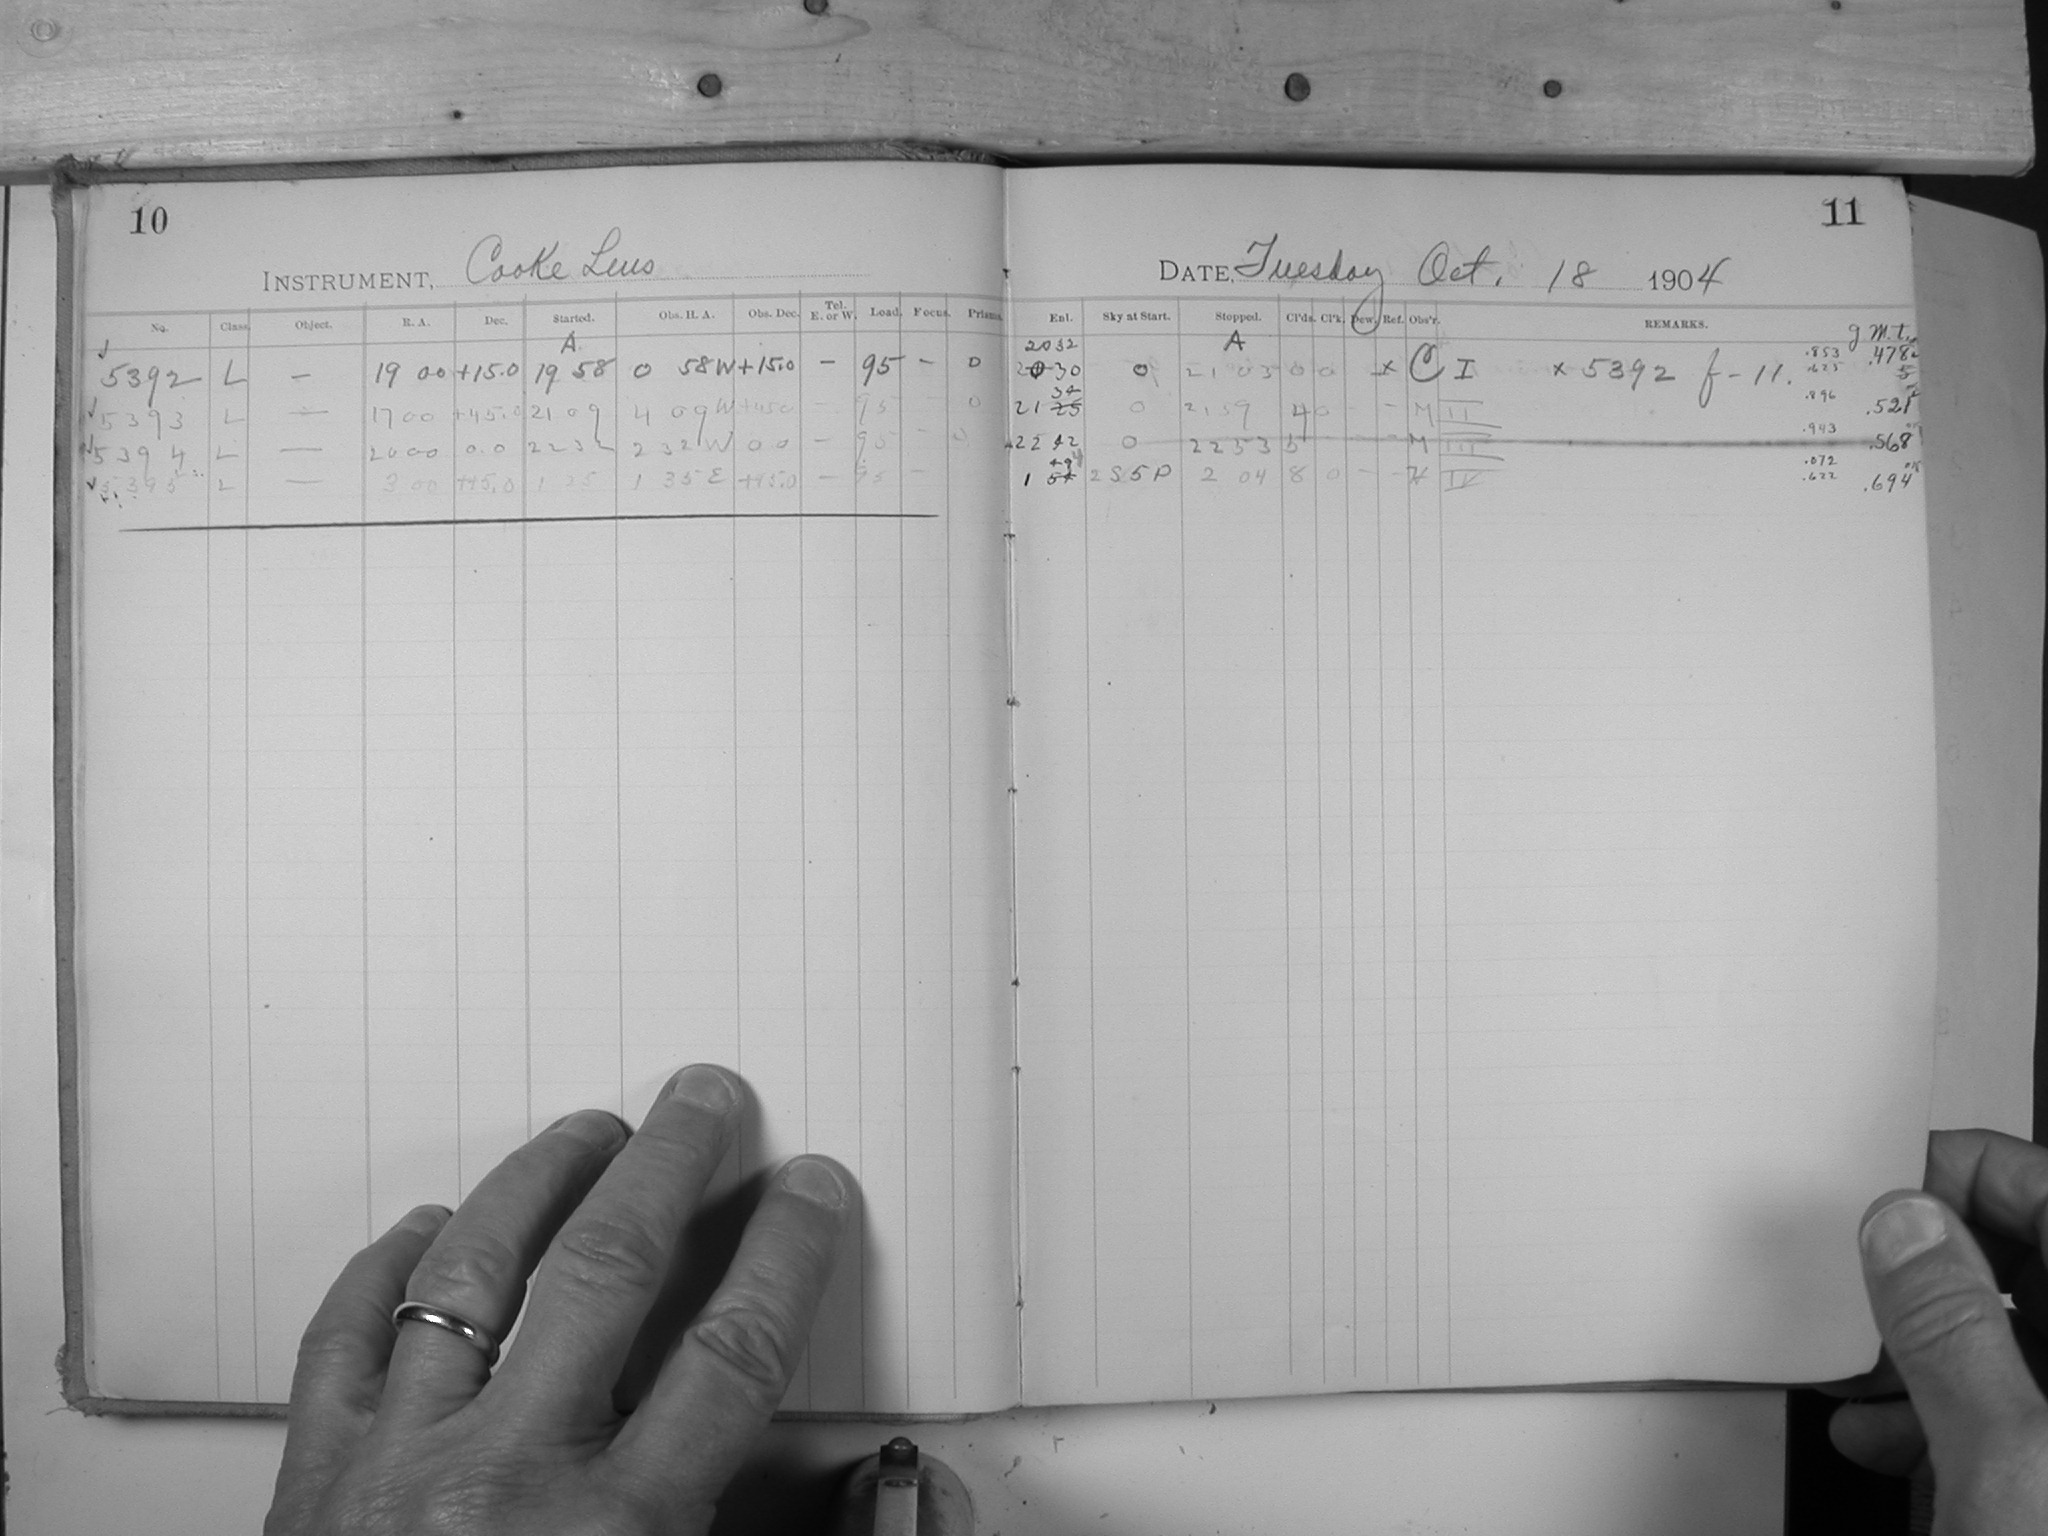 10
11
INSTRUMENT, Cooke Lens
DATE, Tuesday Oct. 18 1904
No. Class. Object. R. A. Dec. Started. Obs. H. A. Obs. Dec. Tel. E. or W. Load. Focus. Prisms.
Enl. Sky at Start. Stopped. Cl'ds. Cl'k. Dew. Ref. Obs'r. REMARKS. G. M. t.
A
2032 A
5392 L — 19 00 +15.0 19 58 0 58W +15.0 — 95 — 0
20 30 0 21 03 0 0 x C I x 5392 f-11. .853 .625 .478
5393 L — 17 00 +45.0 21 09 4 09W +45.0 — 95 — 0
34
21 25 0 21 59 4 0 - - M II .896 .521
5394 L — 20 00 0.0 22 32 2 32W 0.0 — 95 — 0
22 42 0 22 53 5 - - - M III .943 .568
5395 L — 3 00 +45.0 1 25 1 35E +45.0 — 95 —
1 2S5P 2 04 8 0 - - IV .072 .622 .694